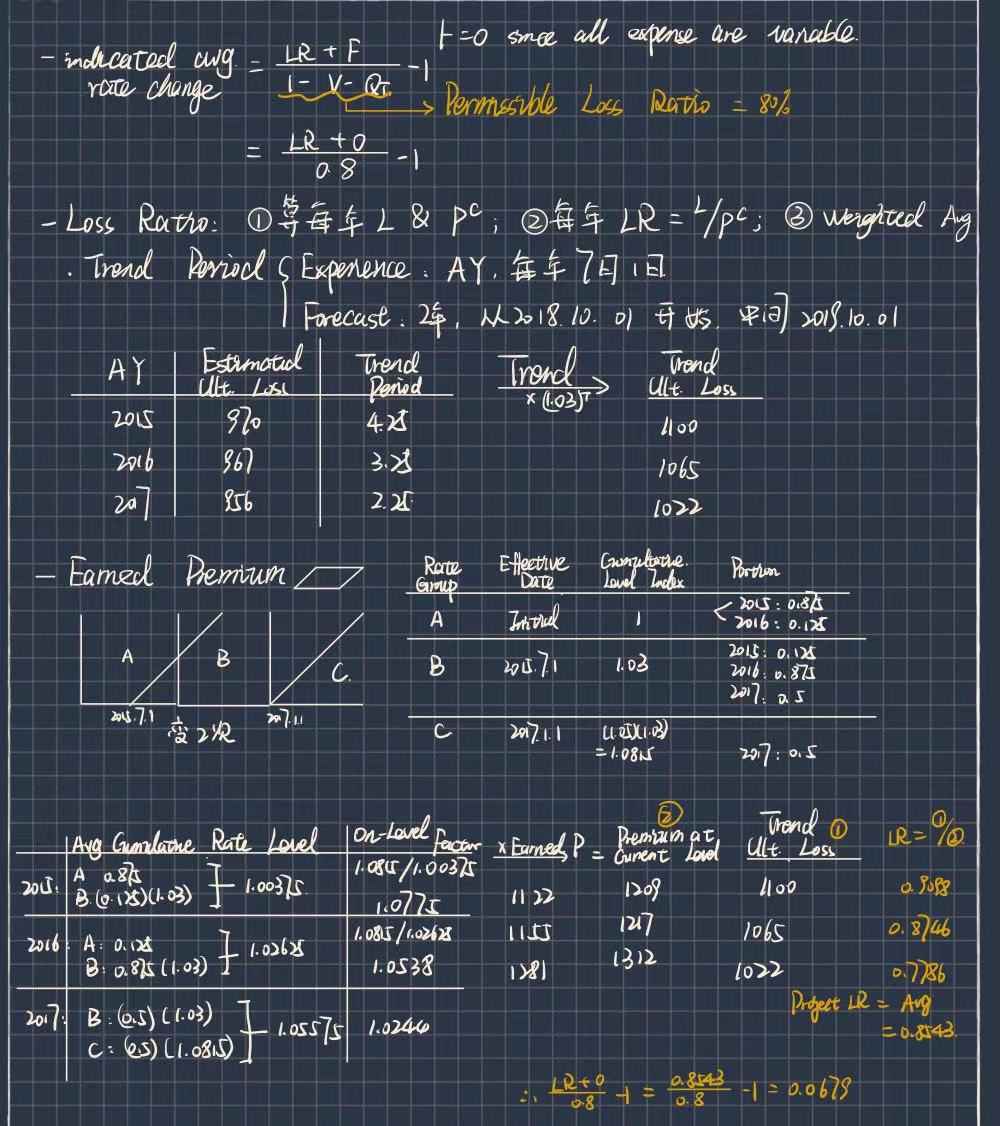 F=0 since all expense are variable.
- indicated avg. rate change = (LR + F)/(1 - V - Q_T) - 1
→ Permissible Loss Ratio = 80%
= (LR + 0)/0.8 - 1
- Loss Ratio: ① 算每年 L & P^c ; ② 每年 LR = L/P^c ; ③ Weighted Avg
· Trend Period { Experience : AY, 每年 7月1日
Forecast : 2年, 从2018.10.01 开始, 中间 2019.10.01
AY | Estimated Ult. Loss | Trend Period | Trend × (1.03)^T → | Trend Ult. Loss
2015 | 970 | 4.25 | 1100
2016 | 967 | 3.25 | 1065
2017 | 956 | 2.25 | 1022
- Earned Premium
A B C.
2015.7.1 2017.1.1
Rate Group | Effective Date | Cumulative Level Index | Portion
A | Initial | 1 | 2015: 0.875
2016: 0.125
B | 2015.7.1 | 1.03 | 2015: 0.125
2016: 0.875
2017: 0.5
C | 2017.1.1 | (1.05)(1.03) = 1.0815 | 2017: 0.5
Avg Cumulative Rate Level | On-Level Factor | × Earned P = | ② Premium at Current Level | Trend Ult. Loss ① | LR = ①/②
2015: A 0.875
B. (0.125)(1.03) ] 1.00375 | 1.0815/1.00375
1.0775 | 1122 | 1209 | 1100 | 0.9098
2016: A: 0.125
B: 0.875 (1.03) ] 1.02625 | 1.0815/1.02625
1.0538 | 1155 | 1217 | 1065 | 0.8746
1281 | 1312 | 1022 | 0.7786
2017: B: (0.5)(1.03)
C: (0.5)(1.0815) ] 1.05575 | 1.0244
Project LR = Avg
= 0.8543
∴ (LR + 0)/0.8 - 1 = 0.8543/0.8 - 1 = 0.0679